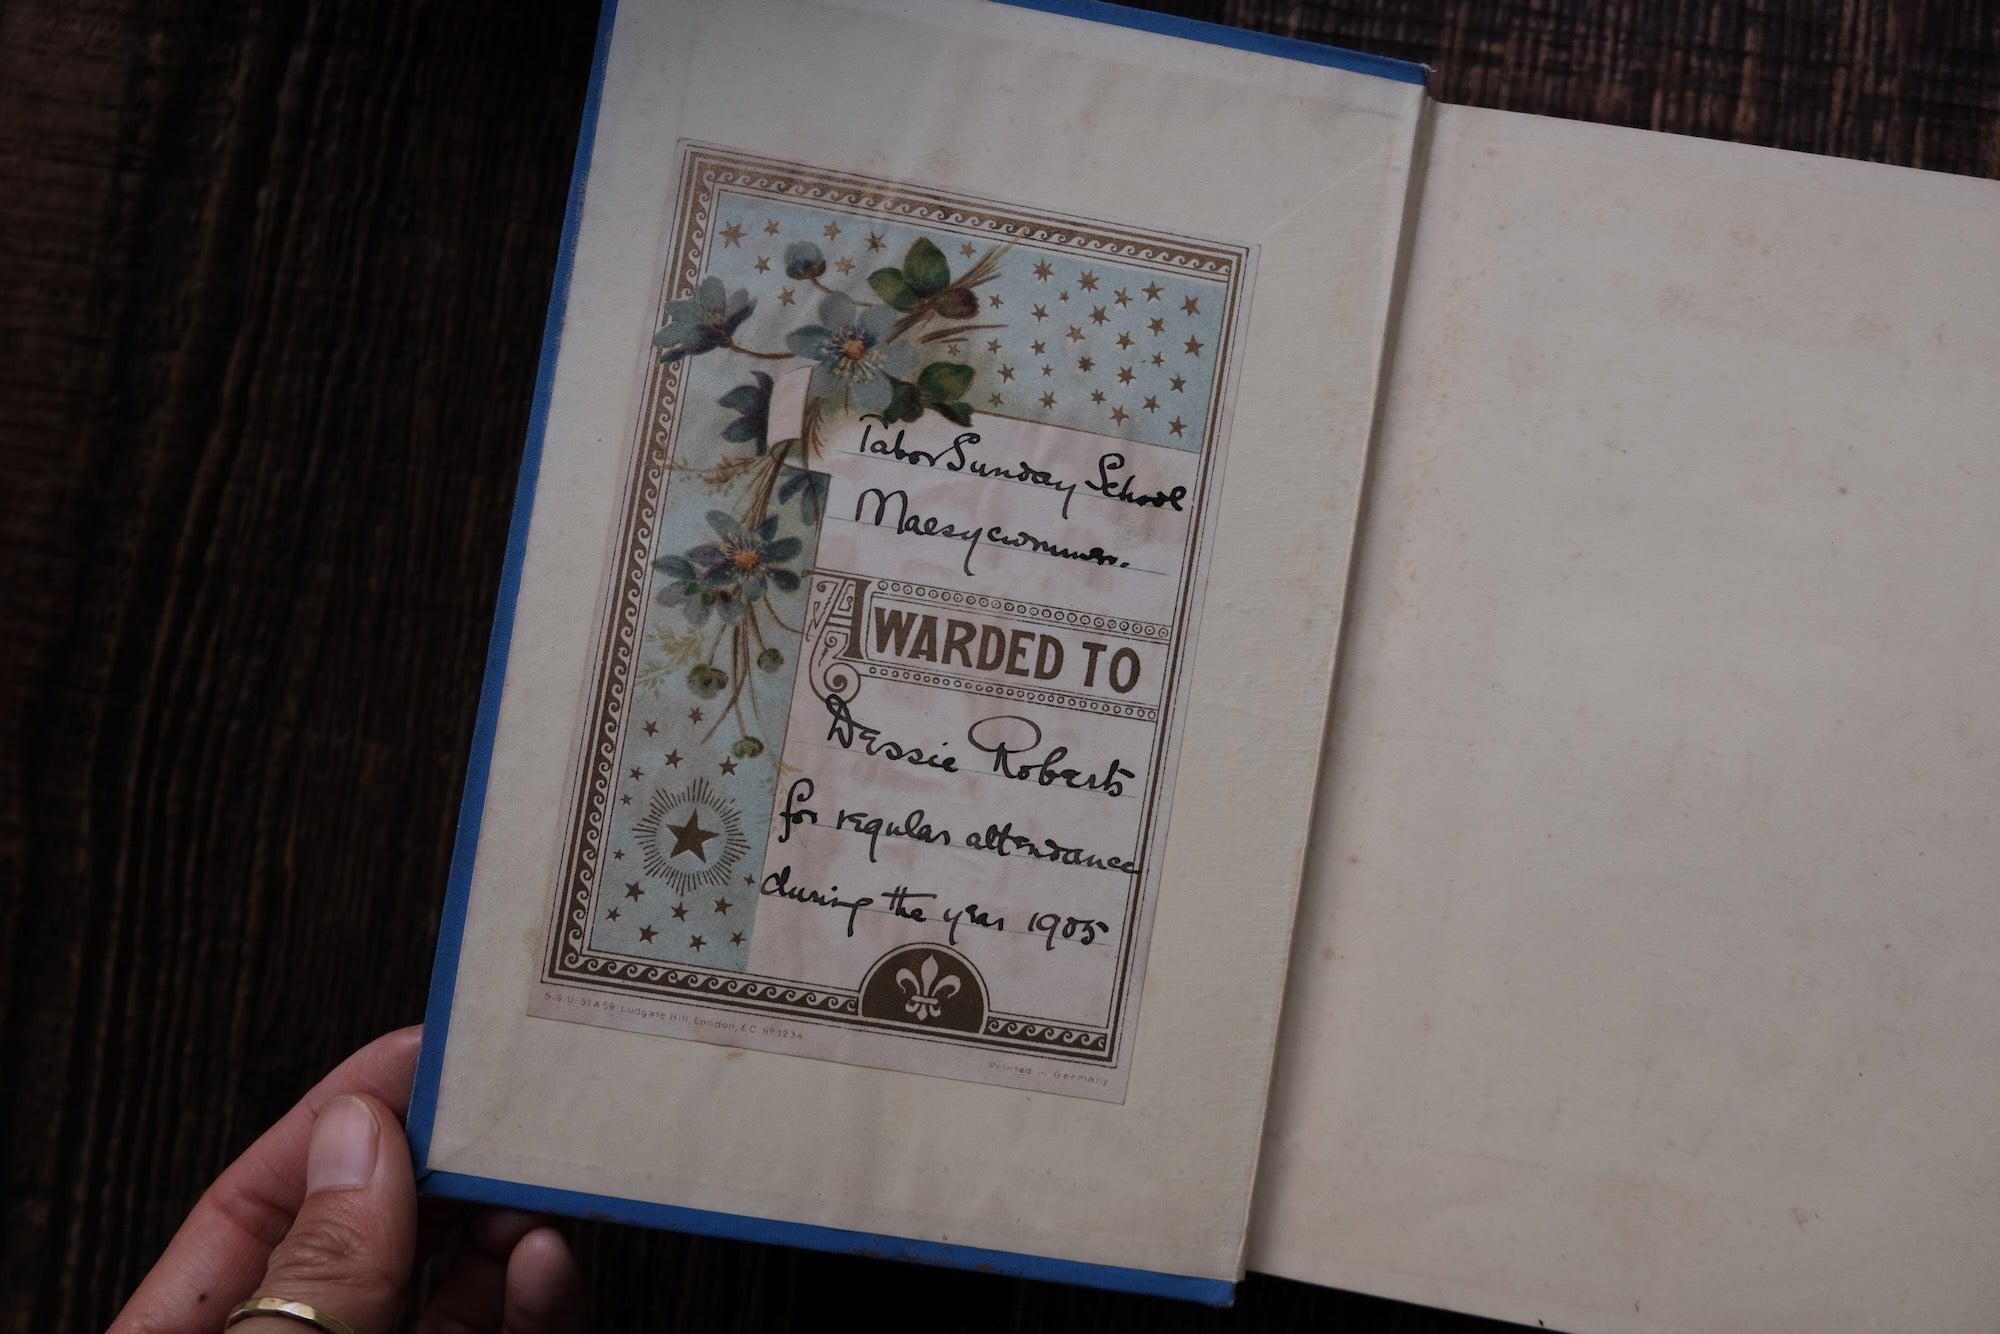 Tabor Sunday School
Maesycwmmer.
AWARDED TO
Dessie Roberts
for regular attendance
during the year 1905
S.S.U. 57 & 59 Ludgate Hill, London, E.C. Nº 1234
Printed in Germany